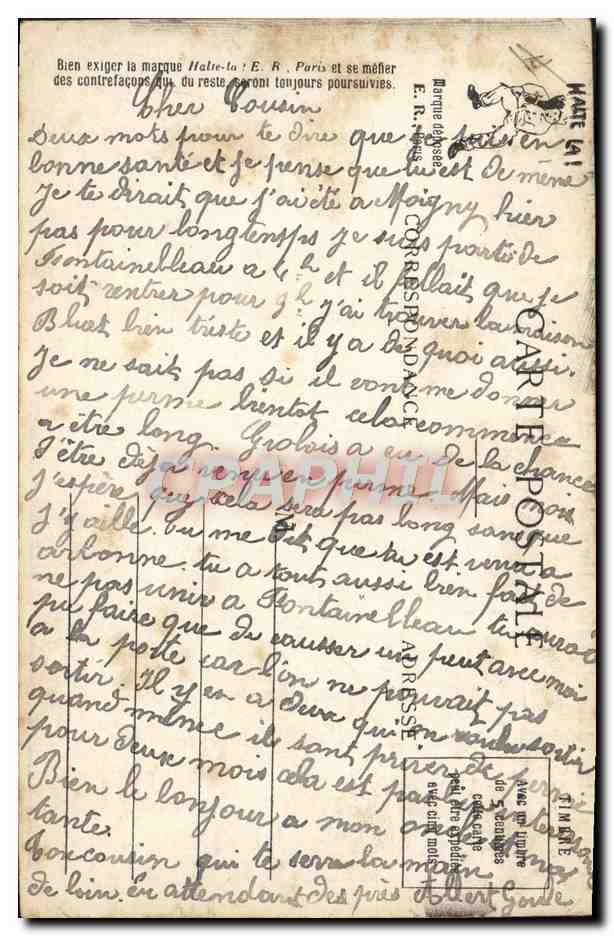 Bien exiger la marque Halte-la ! E. R., Paris et se méfier
des contrefaçons qui, du reste, seront toujours poursuivies.
Marque déposée
E. R., Paris
HALTE LA!
CARTE POSTALE
CORRESPONDANCE
ADRESSE
TIMBRE
Avec un timbre
de 5 centimes
cette carte
peut être expédiée
avec cinq mots
CPAPHIL
Cher Cousin
Deux mots pour te dire que je suis en
bonne santé et je pense que tu est de même
Je te dirait que j'ai été a Moigny hier
pas pour longtemps je suis parti de
Fontainebleau a 4h et il fallait que je
soit rentrer pour 9h j'ai trouver la maison
Bluet bien triste et il y a de quoi aussi.
Je ne sait pas si il vont me donner
une perme bientot cela commence
a être long. Grolois a eu de la chance
d'être déja venu en perme. Mais moi
j'espère que cela sera pas long sans que
j'y aille. Tu me dit que tu est venu a
arbonne. tu a tout aussi bien fait de
ne pas venir a Fontainebleau tu aurait
pu faire que de causser un peut avec moi
a la porte car l'on ne pouvait pas
sortir. Il y en a deux qui on voulu sortir
quand meme il sont priver de perme
pour deux mois cela est pas
Bien le bonjour a mon oncle et ma
tante.
Ton cousin qui te serre la main
de loin. En attendant des près Albert